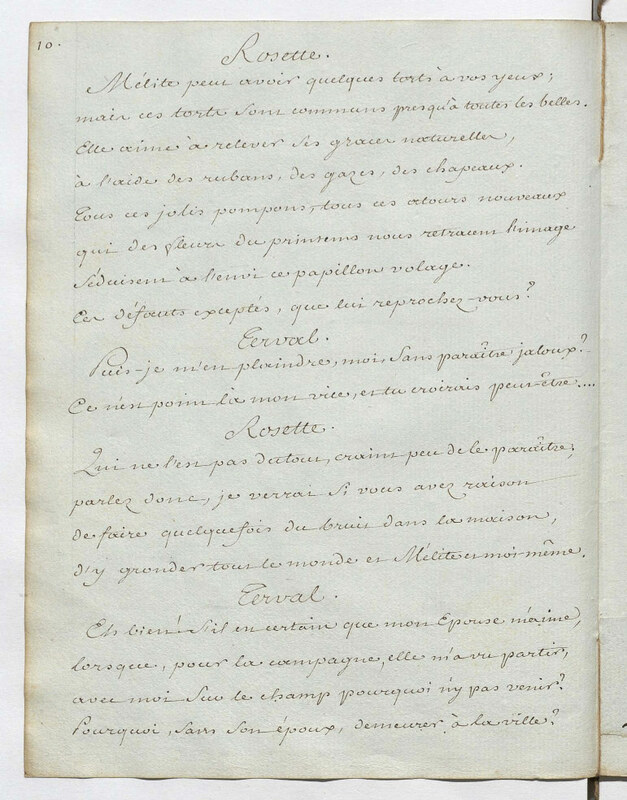 10.
Rosette.
Mélite peut avoir quelques torts à vos yeux;
mais ces torts sont communs presqu'à toutes les belles.
Elle aime à relever ses graces naturelles,
à l'aide des rubans, des gazes, des chapeaux.
Tous ces jolis pompons, tous ces atours nouveaux
qui des fleurs du printems nous retracent l'image
séduisent à l'envi ce papillon volage.
Ces défauts exceptés, que lui reprochez-vous?
Terval.
Puis-je m'en plaindre, moi, sans paraître jaloux?
Ce n'est point là mon vice, et tu croirais peut-être....
Rosette.
Qui ne l'est pas du tout, craint peu de le paraître;
parlez donc, je verrai si vous avez raison
de faire quelquefois du bruit dans la maison,
d'y gronder tout le monde et Mélite et moi-même.
Terval.
Eh bien! S'il est certain que mon Epouse m'aime,
lorsque, pour la campagne, elle m'a vu partir,
avec moi sur le champ pourquoi n'y pas venir?
Pourquoi, sans son époux, demeurer à la ville?